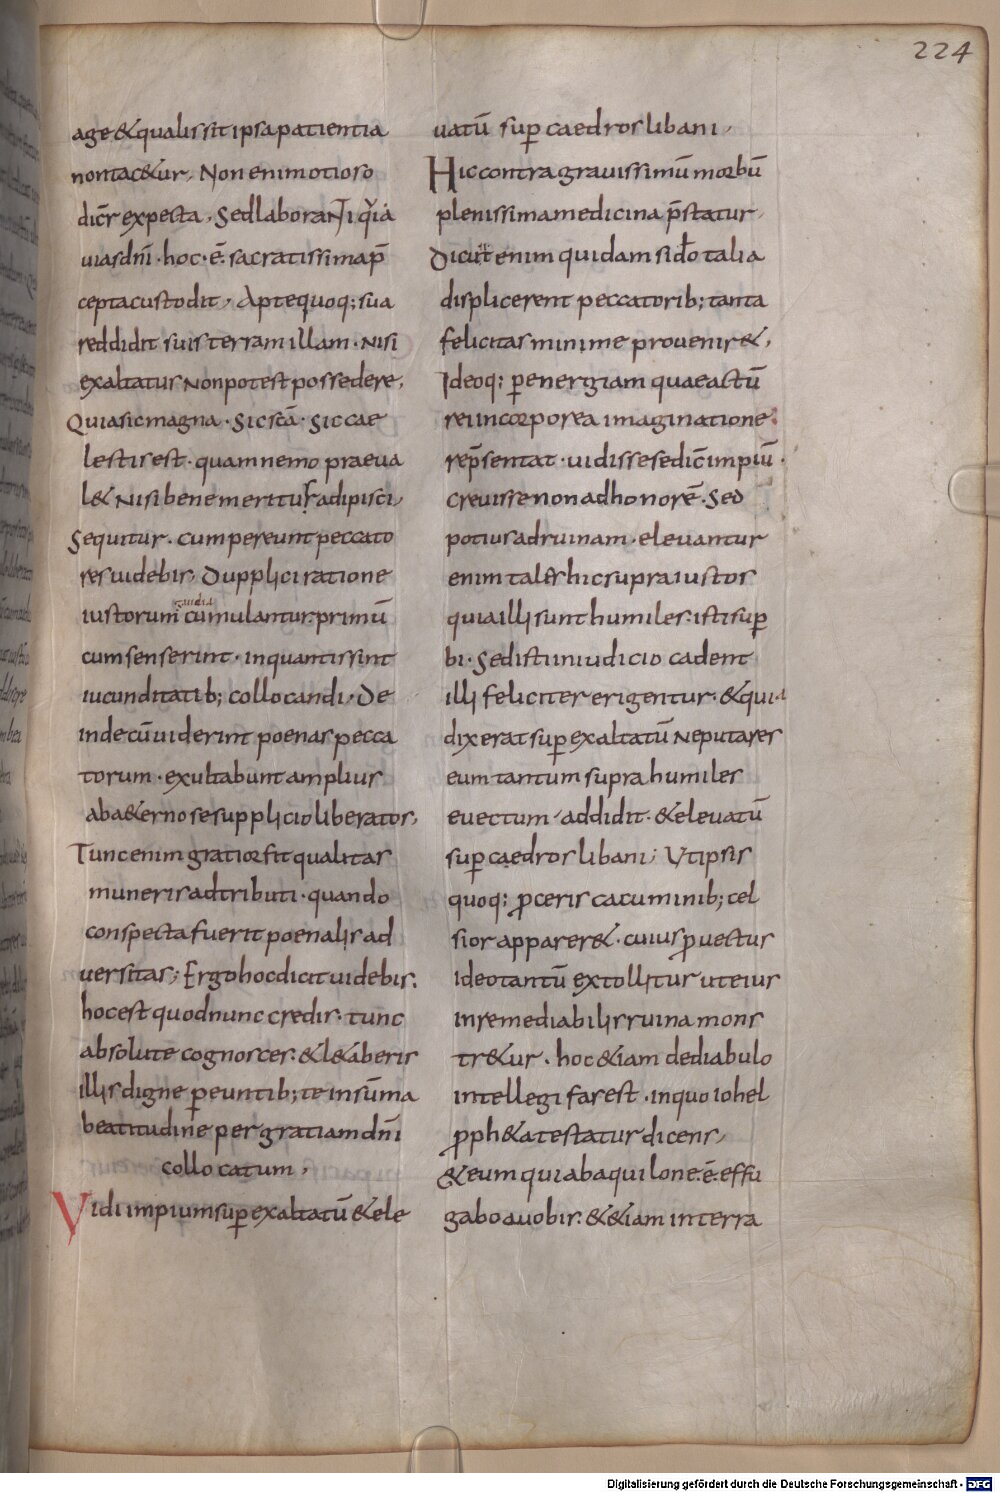 224
age & qualis sit ipsa patientia
non tac&ur, Non enim otioso
dicr expecta, Sed laboranti q̇ia
uias dnī · hoc · ē sacratissima p̄
cepta custodit, Apte quoq; sua
reddidit suis terram illam · Nisi
exaltatus Non potest possedere,
Quia sic magna · sic scā · sic cae
lestis est · quam nemo praeua
l& Nisi bene meritus adipisci,
Sequitur · cum pereunt peccato
res uidebis, Dupplici ratione
gaudia
iustorum cumulantur: primū
cum senserint · in quantis sint
iucunditatib; collocandi, De
inde cū uiderint poenas pecca
torum · exultabunt amplius
ab a&erno se supplicio liberatos,
Tunc enim gratior fit qualitas
muneris adtributi · quando
conspecta fuerit poenalis ad
uersitas; Ergo hoc dicit uidebis.
hoc est quod nunc credis · tunc
absolute cognosces. & l&aberis
illis digne p̲euntib; te in sūma
beatitudine per gratiam dnī
collocatum,
Vidi impium sup̲ exaltatū & ele
uatū sup̲ caedros libani,
Hic contra grauissimū morbū
plenissima medicina p̄statur,
Dicūt enim quidam si dō talia
displicerent peccatorib; tanta
felicitas minime prouenir&,
Ideoq: p̲ energiam quae actū
rei incorporea imaginatione
rep̄sentat · uidisse se dic̄ impiū ·
creuisse non ad honorē · Sed
potius ad ruinam · eleuantur
enim tales hic supra iustos
quia illi sunt humiles: isti sup̲
bi · Sed isti in iudicio cadent
illi feliciter erigentur · & quia
dixerat sup̲ exaltatū Ne putares
eum tantum supra humiles
euectum, addidit · & eleuatū
sup̲ caedros libani; Ut ipsis
quoq: p̲ceris cacuminib; cel
sior apparer& · cuius p̲uectus
ideo tantū extollitur ut eius
inremediabilis ruina mons
tr&ur · hoc &iam de diabulo
intellegi fas est · in quo iohel
p̲ph&a testatur dicens,
& eum qui ab aquilone · ē · effu
gabo a uobis: & &iam in terra
Digitalisierung gefördert durch die Deutsche Forschungsgemeinschaft - DFG